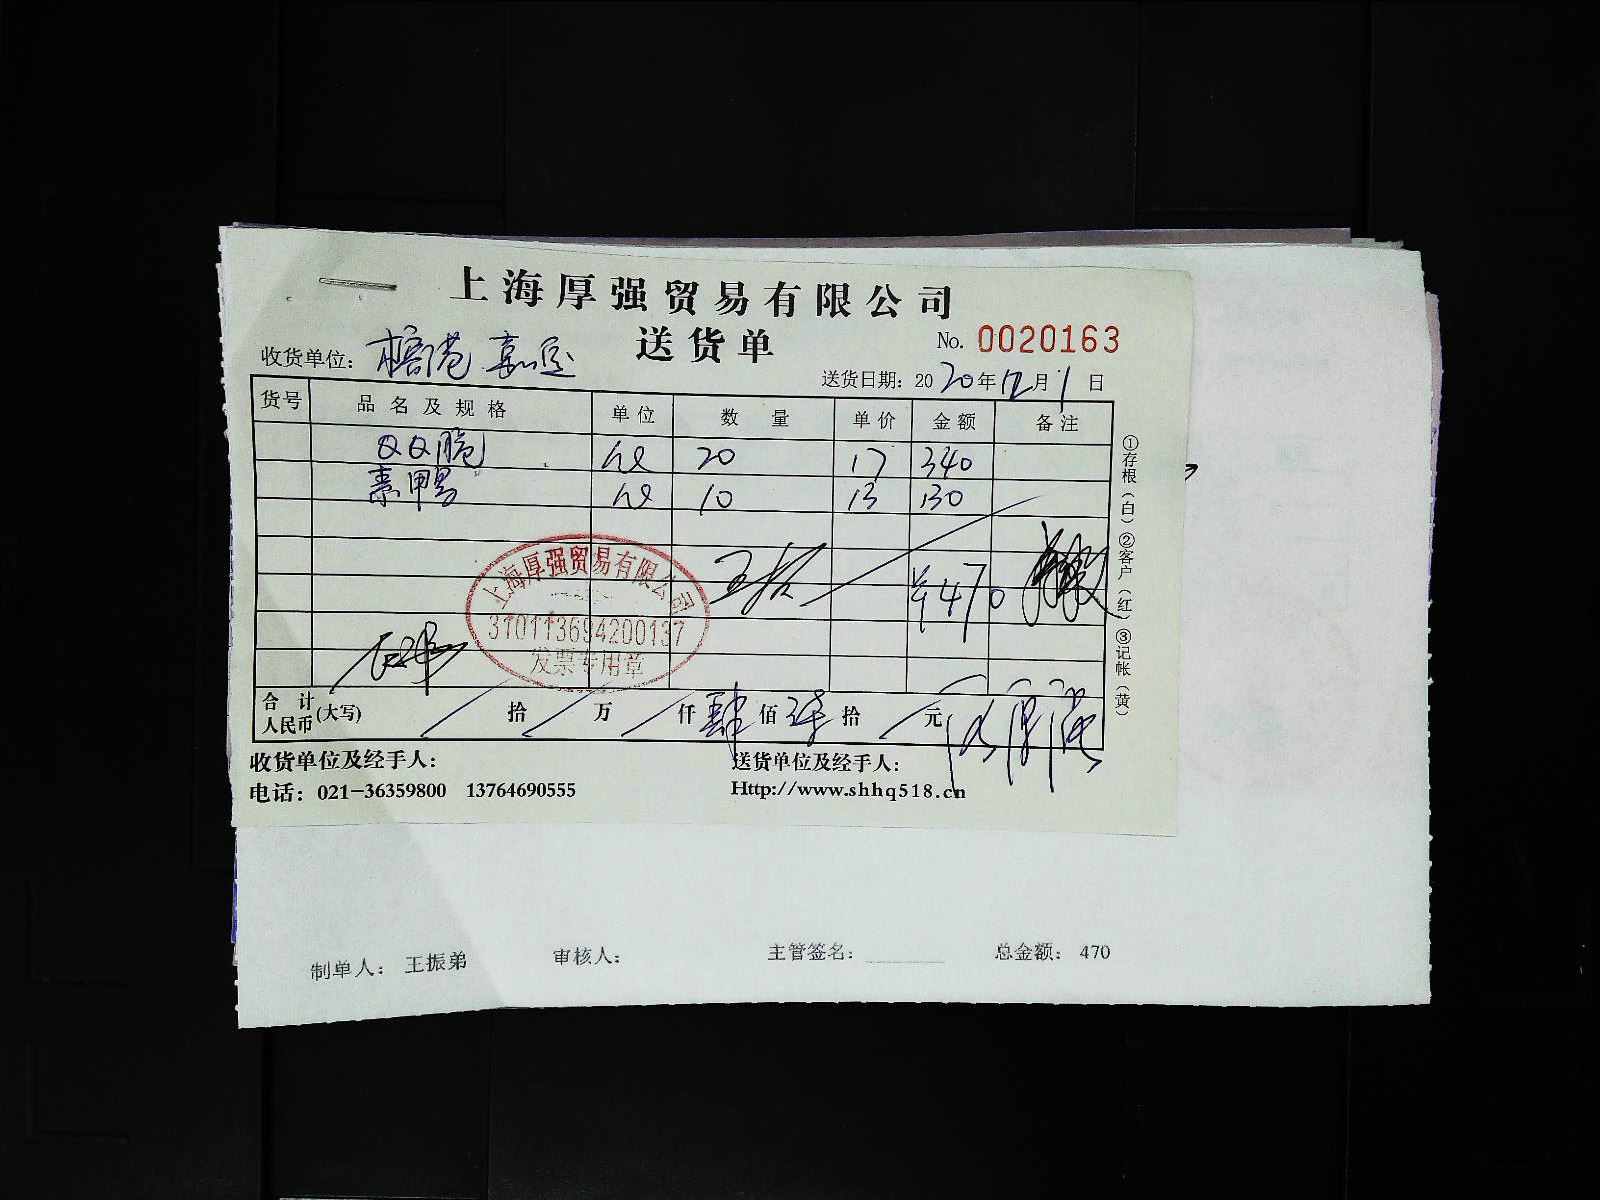 上海厚强贸易有限公司
送货单
No. 0020163
收货单位: 榕港 嘉定
送货日期: 2020年12月1日
货号 品名及规格 单位 数量 单价 金额 备注
QQ脆 包 20 17 340
素鸭 包 10 13 130
¥470
上海厚强贸易有限公司
310113694200137
发票专用章
①存根(白)②客户(红)③记帐(黄)
合计人民币(大写) 拾 万 仟 肆 佰 柒 拾 元
收货单位及经手人: 送货单位及经手人:
电话: 021-36359800 13764690555 Http://www.shhq518.cn
制单人: 王振弟 审核人: 主管签名: 总金额: 470